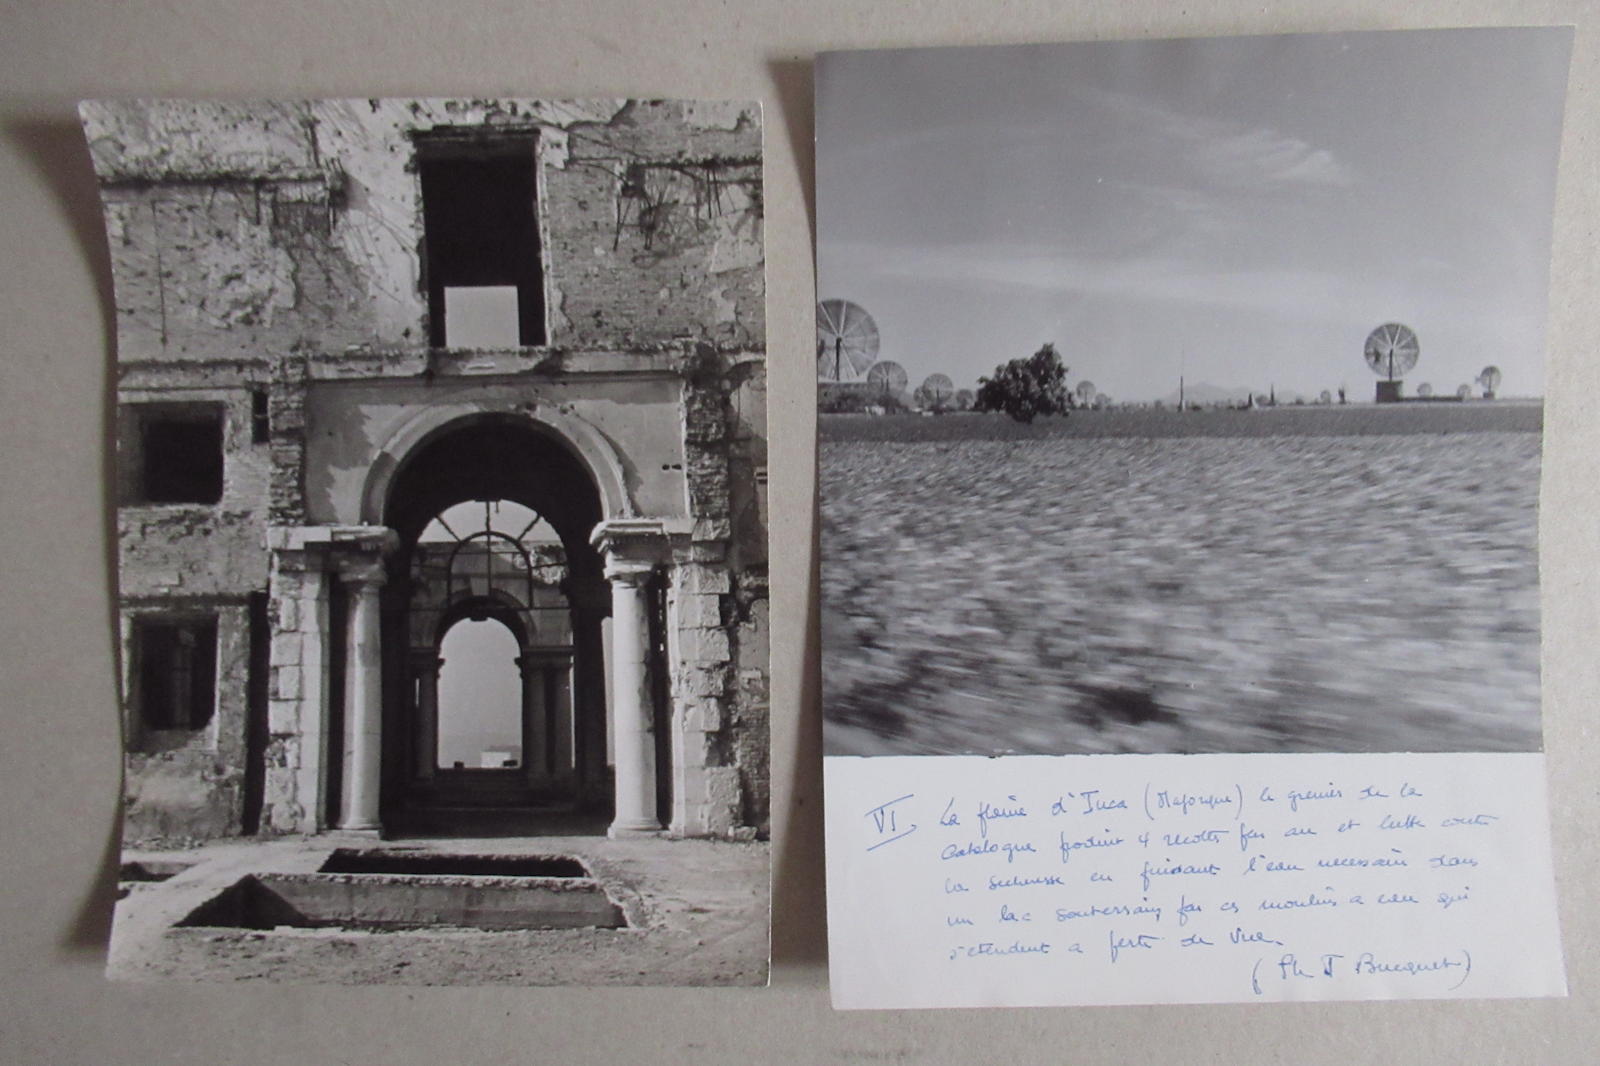 VI. La plaine d'Inca (Majorque) le grenier de la
Catalogne produit 4 recoltes par an et lutte contre
la secheresse en puisant l'eau necessaire dans
un lac souterrain, par ces moulins a eau qui
s'etendent a perte de vue.
(Ph J Bucquet)